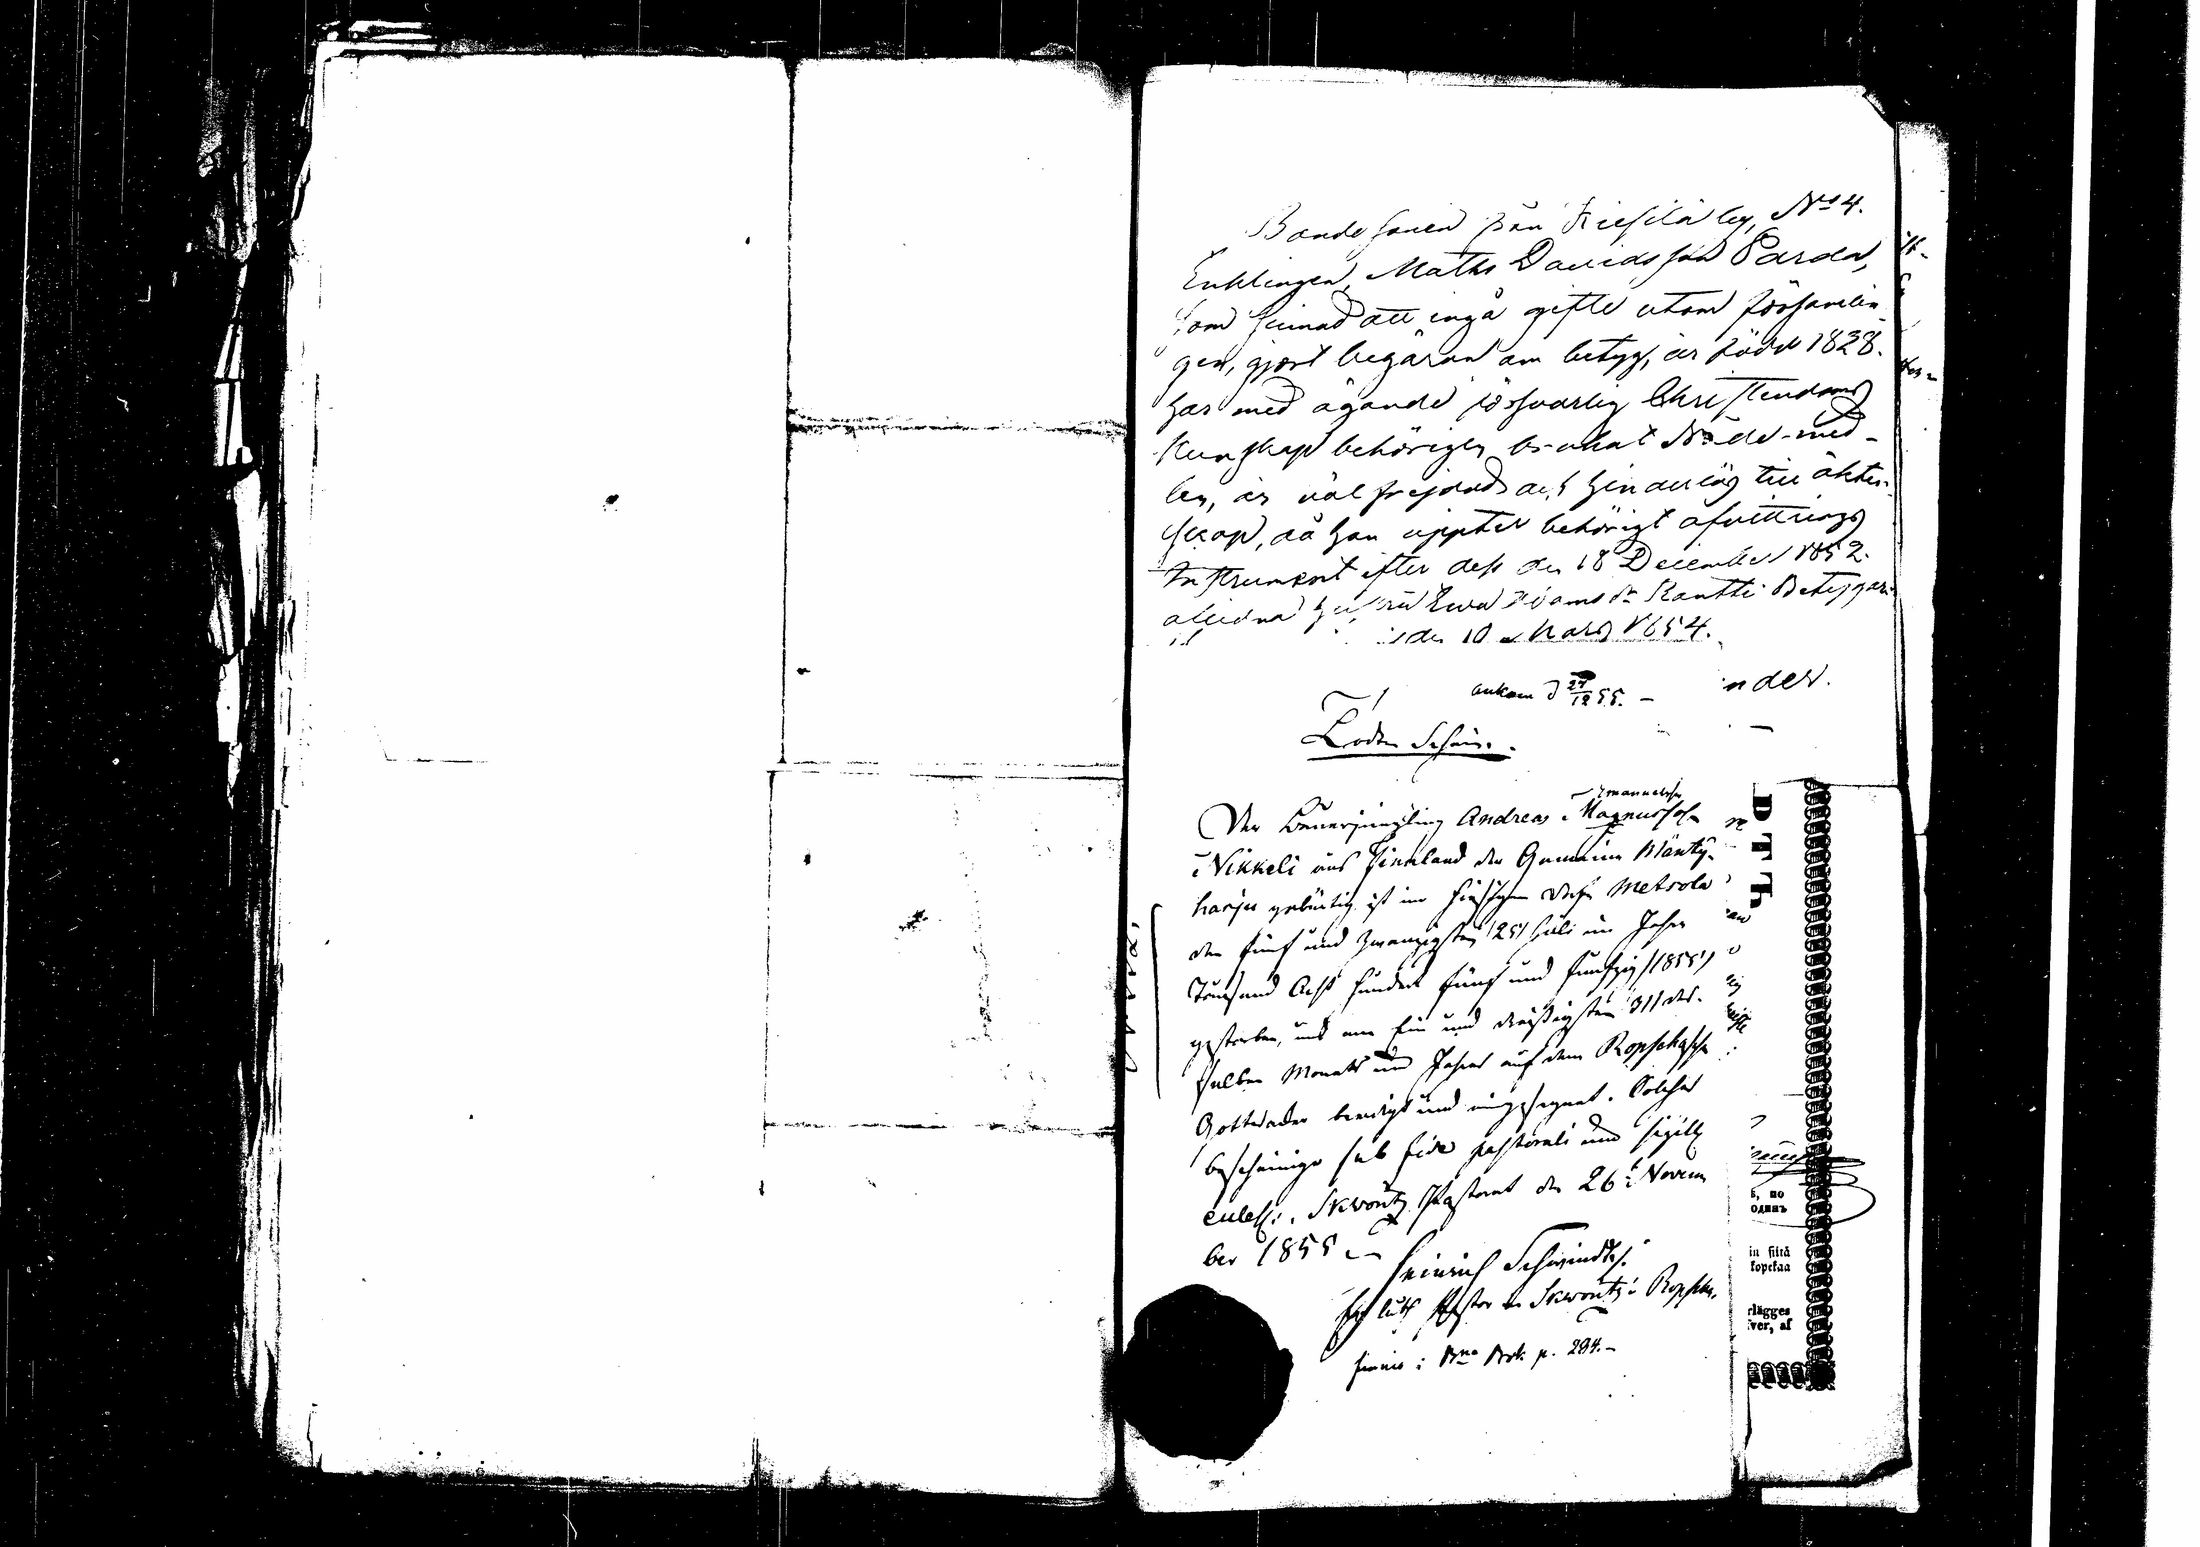 Bondesonen från Kiesilä by, No 4.
Enklingen, Maths Davidsson Parda,
som sinnad att ingå gifte utom församlin-
gen, gjort begäran om betyg, är född 1828.
har med ägande försvarlig Christendoms
kunskap behörigen brukat Nåde-med-
len, är väl frejdad och hinderlös till äkten-
skap, då han uppter behörigt afvittrings
Instrument efter dess den 18 December 1852.
aflidna hustru Eva Adamsdr Kantti. Betygar
den 10 Mars 1854.
ankom d 27/12 55. —
nder.
Todten Schein.
Emanuelsson
Der Bauerjüngling Andreas Magnusson
Nikkeli aus Finnland der Gemeine Mänty-
harju gebürtig ist im hiesigen Dorfe Metsola
den fünf und zwanzigsten /25/ Juli im Jahre
Tausend Acht hundert fünf und funfzig /1855/
gestorben, und am ein und dreißigsten /31/ des-
selben Monats und Jahres auf dem Ropschaschen
Gottesacker beerdigt und eingesegnet. Solches
bescheinige sub fide pastorali und sigillo
eccles: Skworitz Pastorat den 26t Novem
ber 1855
Heinrich Schwindt
Pastor in Skworitz u Ropscha.
finnes i Bok p. 294. —
DTTЬ
ь, по
одинъ
in siitä
kopekaa
rlägges
fver, af